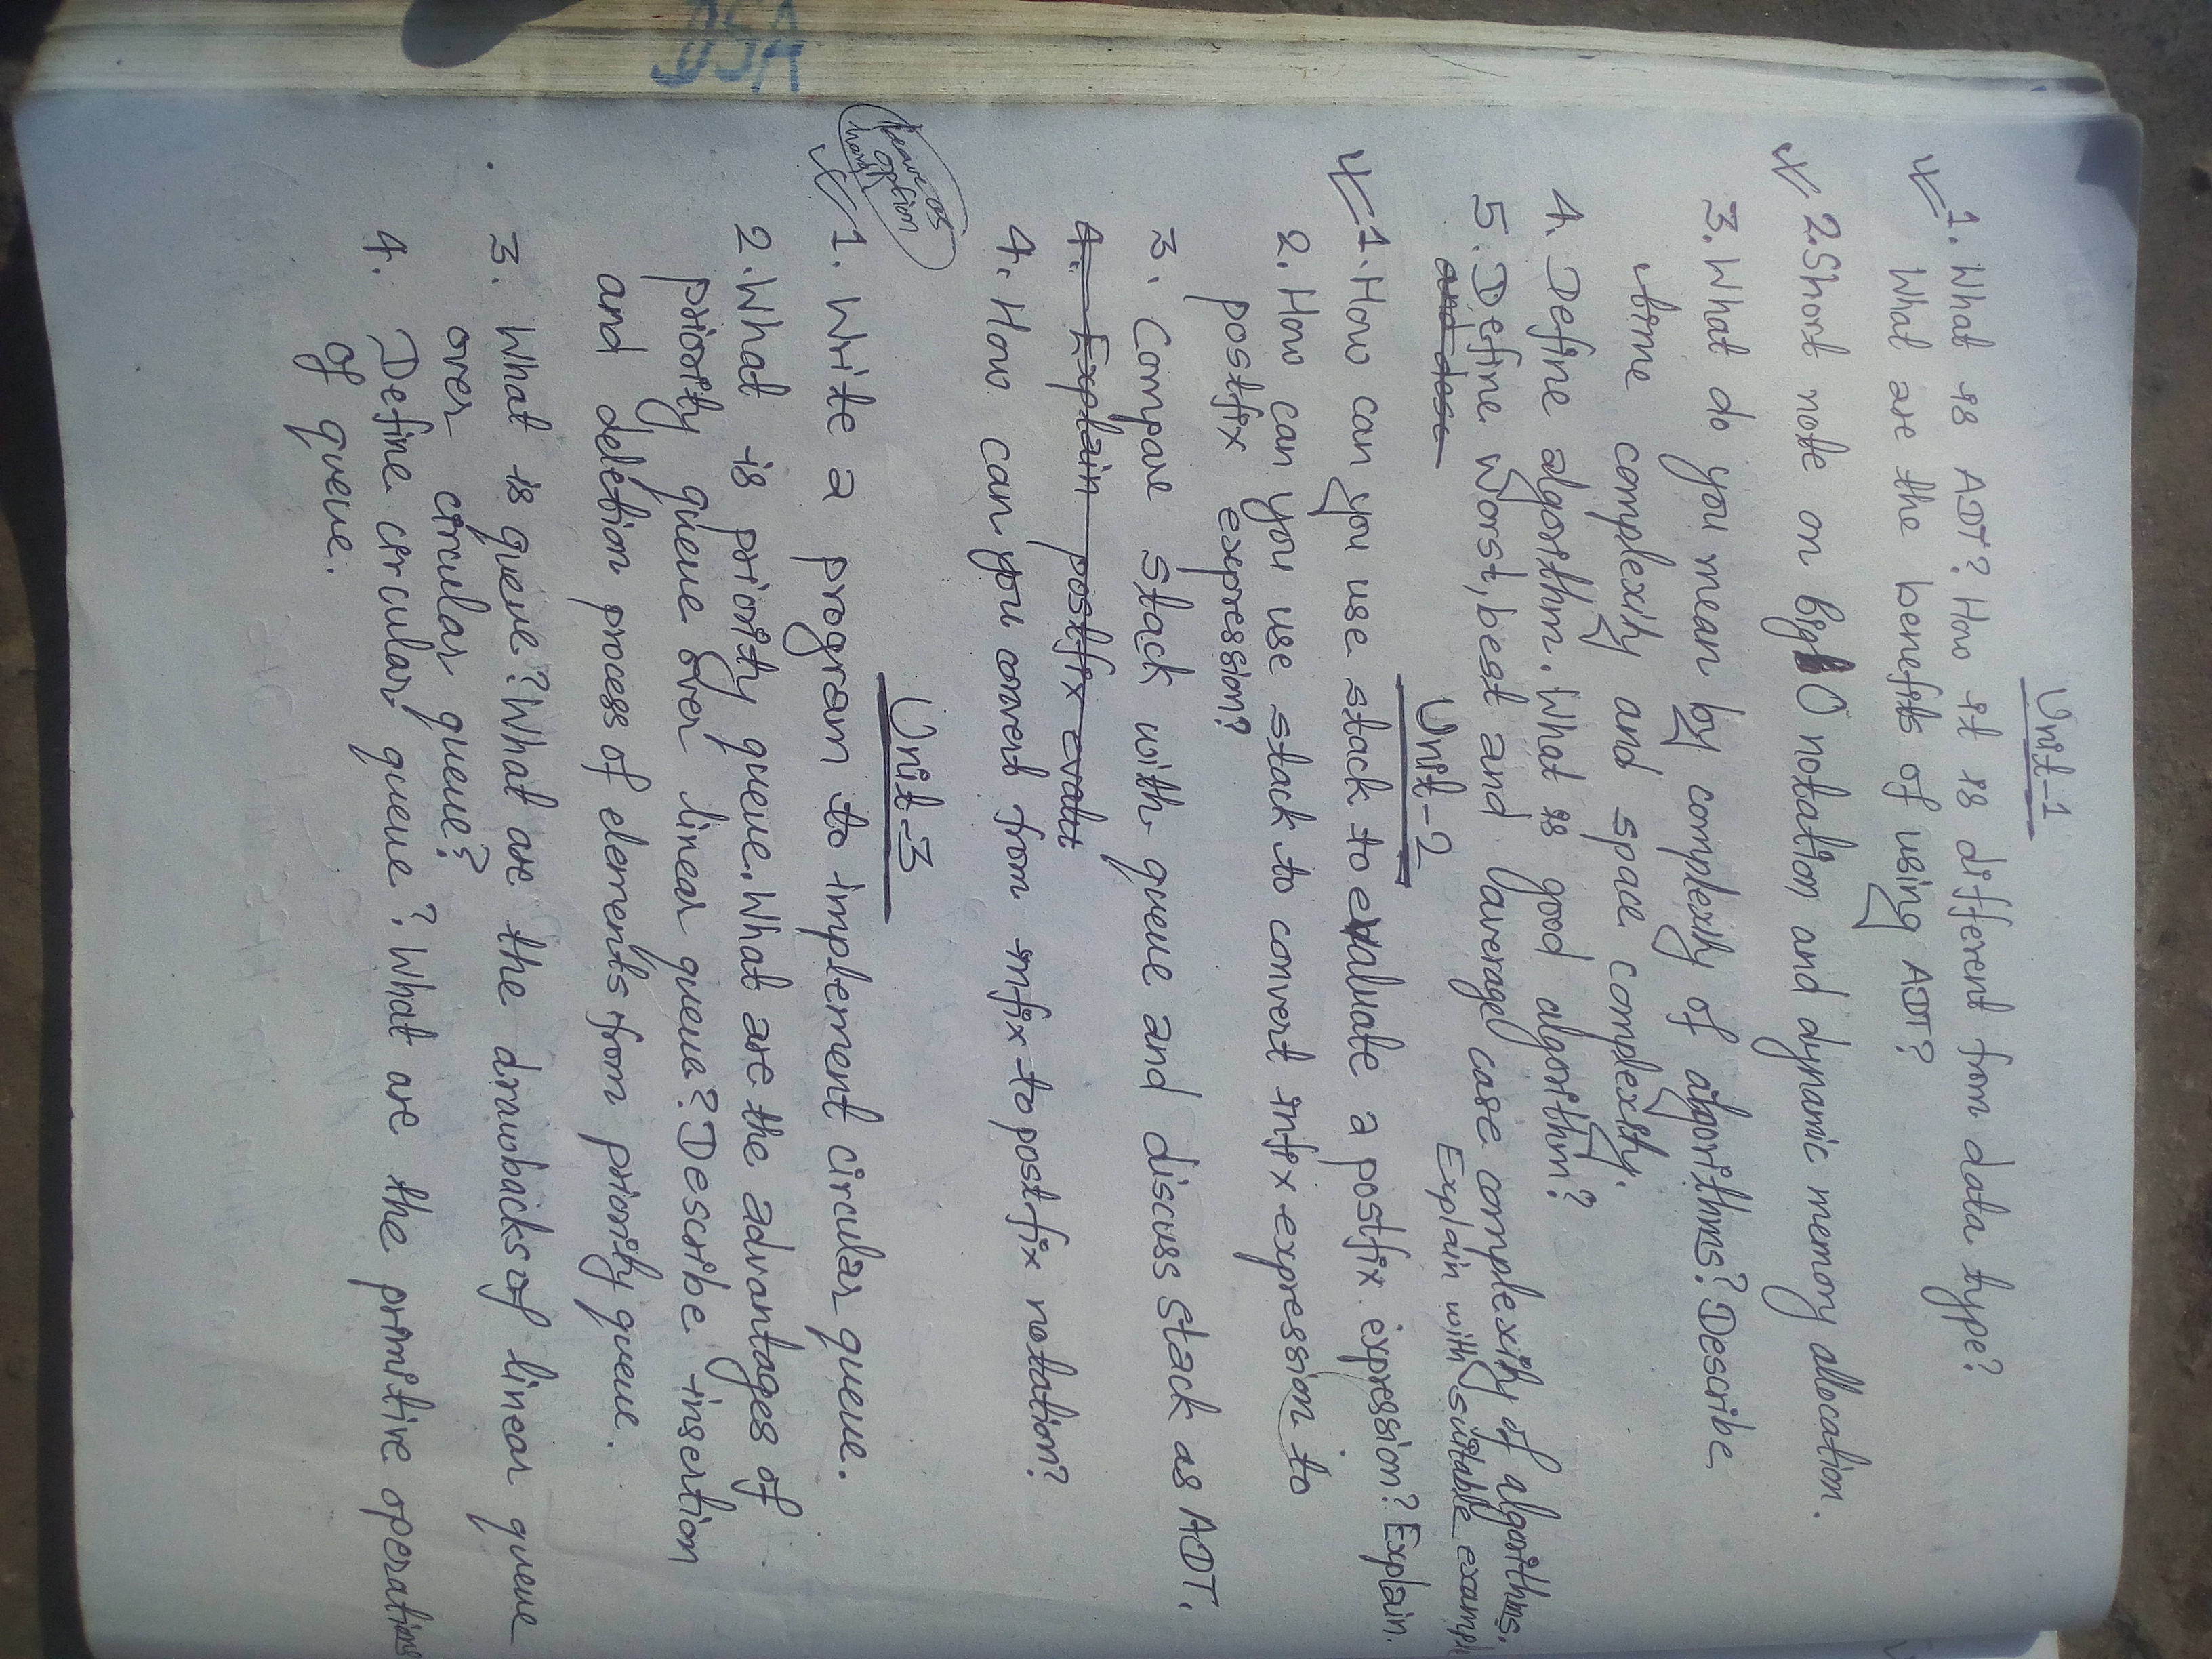 Unit-1
1. What is ADT? How it is different from data type?
What are the benefits of using ADT?
2. Short note on Big O notation and dynamic memory allocation.
3. What do you mean by complexity of algorithms? Describe
time complexity and space complexity.
4. Define algorithm. What is good algorithm?
5. Define worst, best and average case complexity of algorithms.
and desc
Explain with suitable example
Unit-2
1. How can you use stack to evaluate a postfix expression? Explain.
2. How can you use stack to convert infix expression to
postfix expression?
3. Compare stack with queue and discuss stack as ADT.
4. Explain postfix evalu
4. How can you convert from infix to postfix notation?
Leave as
option
hard
Unit-3
1. Write a program to implement circular queue.
2. What is priority queue. What are the advantages of
priority queue over linear queue? Describe insertion
and deletion process of elements from priority queue.
3. What is queue? What are the drawbacks of linear queue
over circular queue?
4. Define circular queue? What are the primitive operations
of queue.